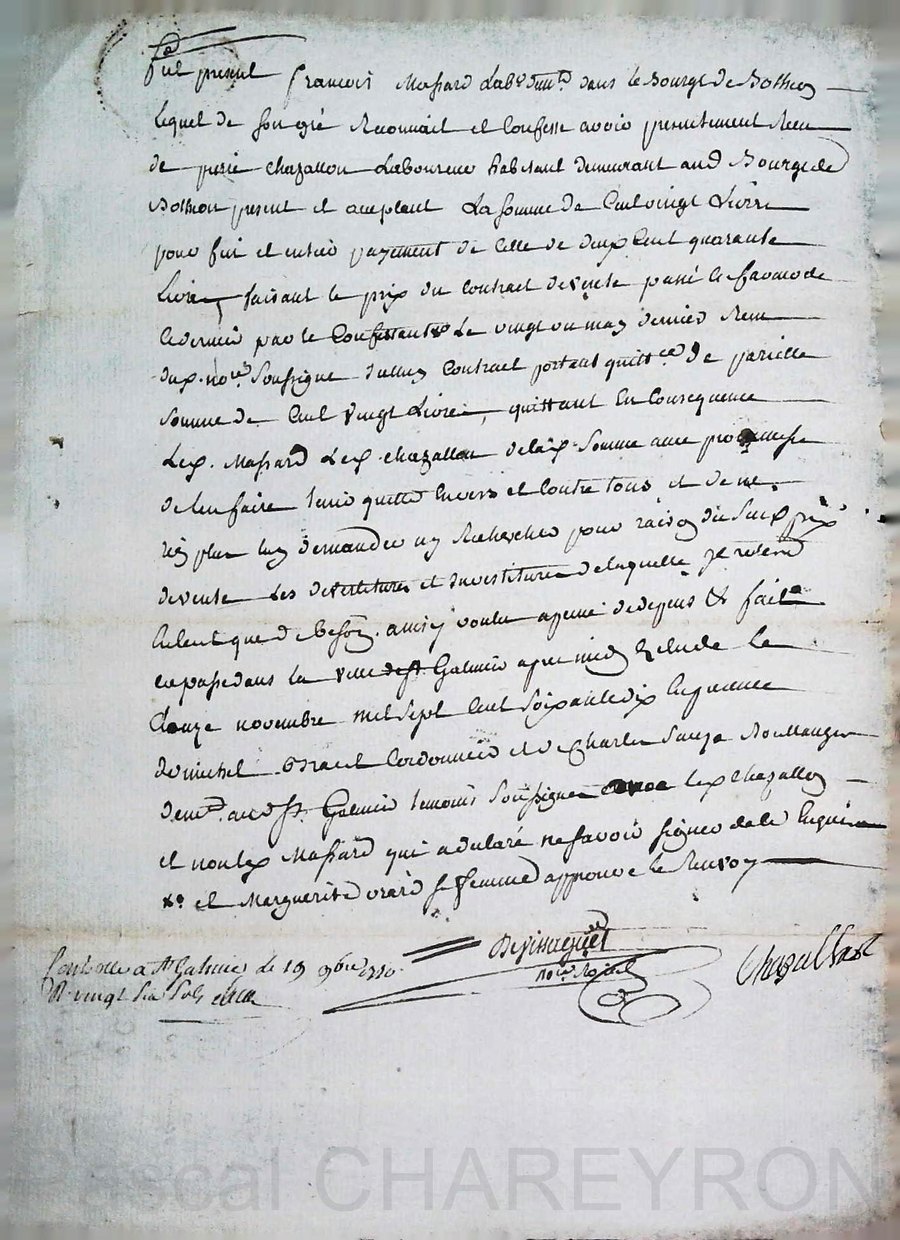 fut present françois Massard Labr demt dans le Bourgt de Bothéon
Lequel de son gré Reconnait et Confesse avoir presentement Receu
de pierre chazallon Laboureur habitant demeurant aud Bourgt de
Bothéon present et aceptant La somme de Cent vingt Livres
pour fin et entier payement de Celle de deux Cent quarante
Livres, faisant le prix du Contract de vente passé en faveur de
ce dernier par le Confessant xo Le vingt un may dernier Receu
dux. nore Soussigné Contract portant quittce de pareille
somme de Cent vingt Livres, quittant En Consequence
Led. Massard Led. chazallon de lad. somme avec promesse
de len faire tenir quitte Envers et Contre tous et de ne
rien plus luy demander ny Rechercher pour raison du Susd prix
de vente Les devettitures et investitures de laquelle
ainsy voulu apeine de depens & fait
et passé dans la ville de st Galmier apres midy Letude Le
douze novembre mil sept Cent soixante dix En presence
de michel Cordonnier et de Charles Boullanger
demt. aud st Galmier temoins Soussignés avec led Chazallon
et non led Massard qui a declaré ne savoir signer de ce Enquis
xo et Marguerite orard sa femme approuvé le Renvoy
Devissaguet
nore Royal
Chazallon
Controllé a st Galmier le 19 9bre 1770.
R. vingt six sols
Pascal CHAREYRON